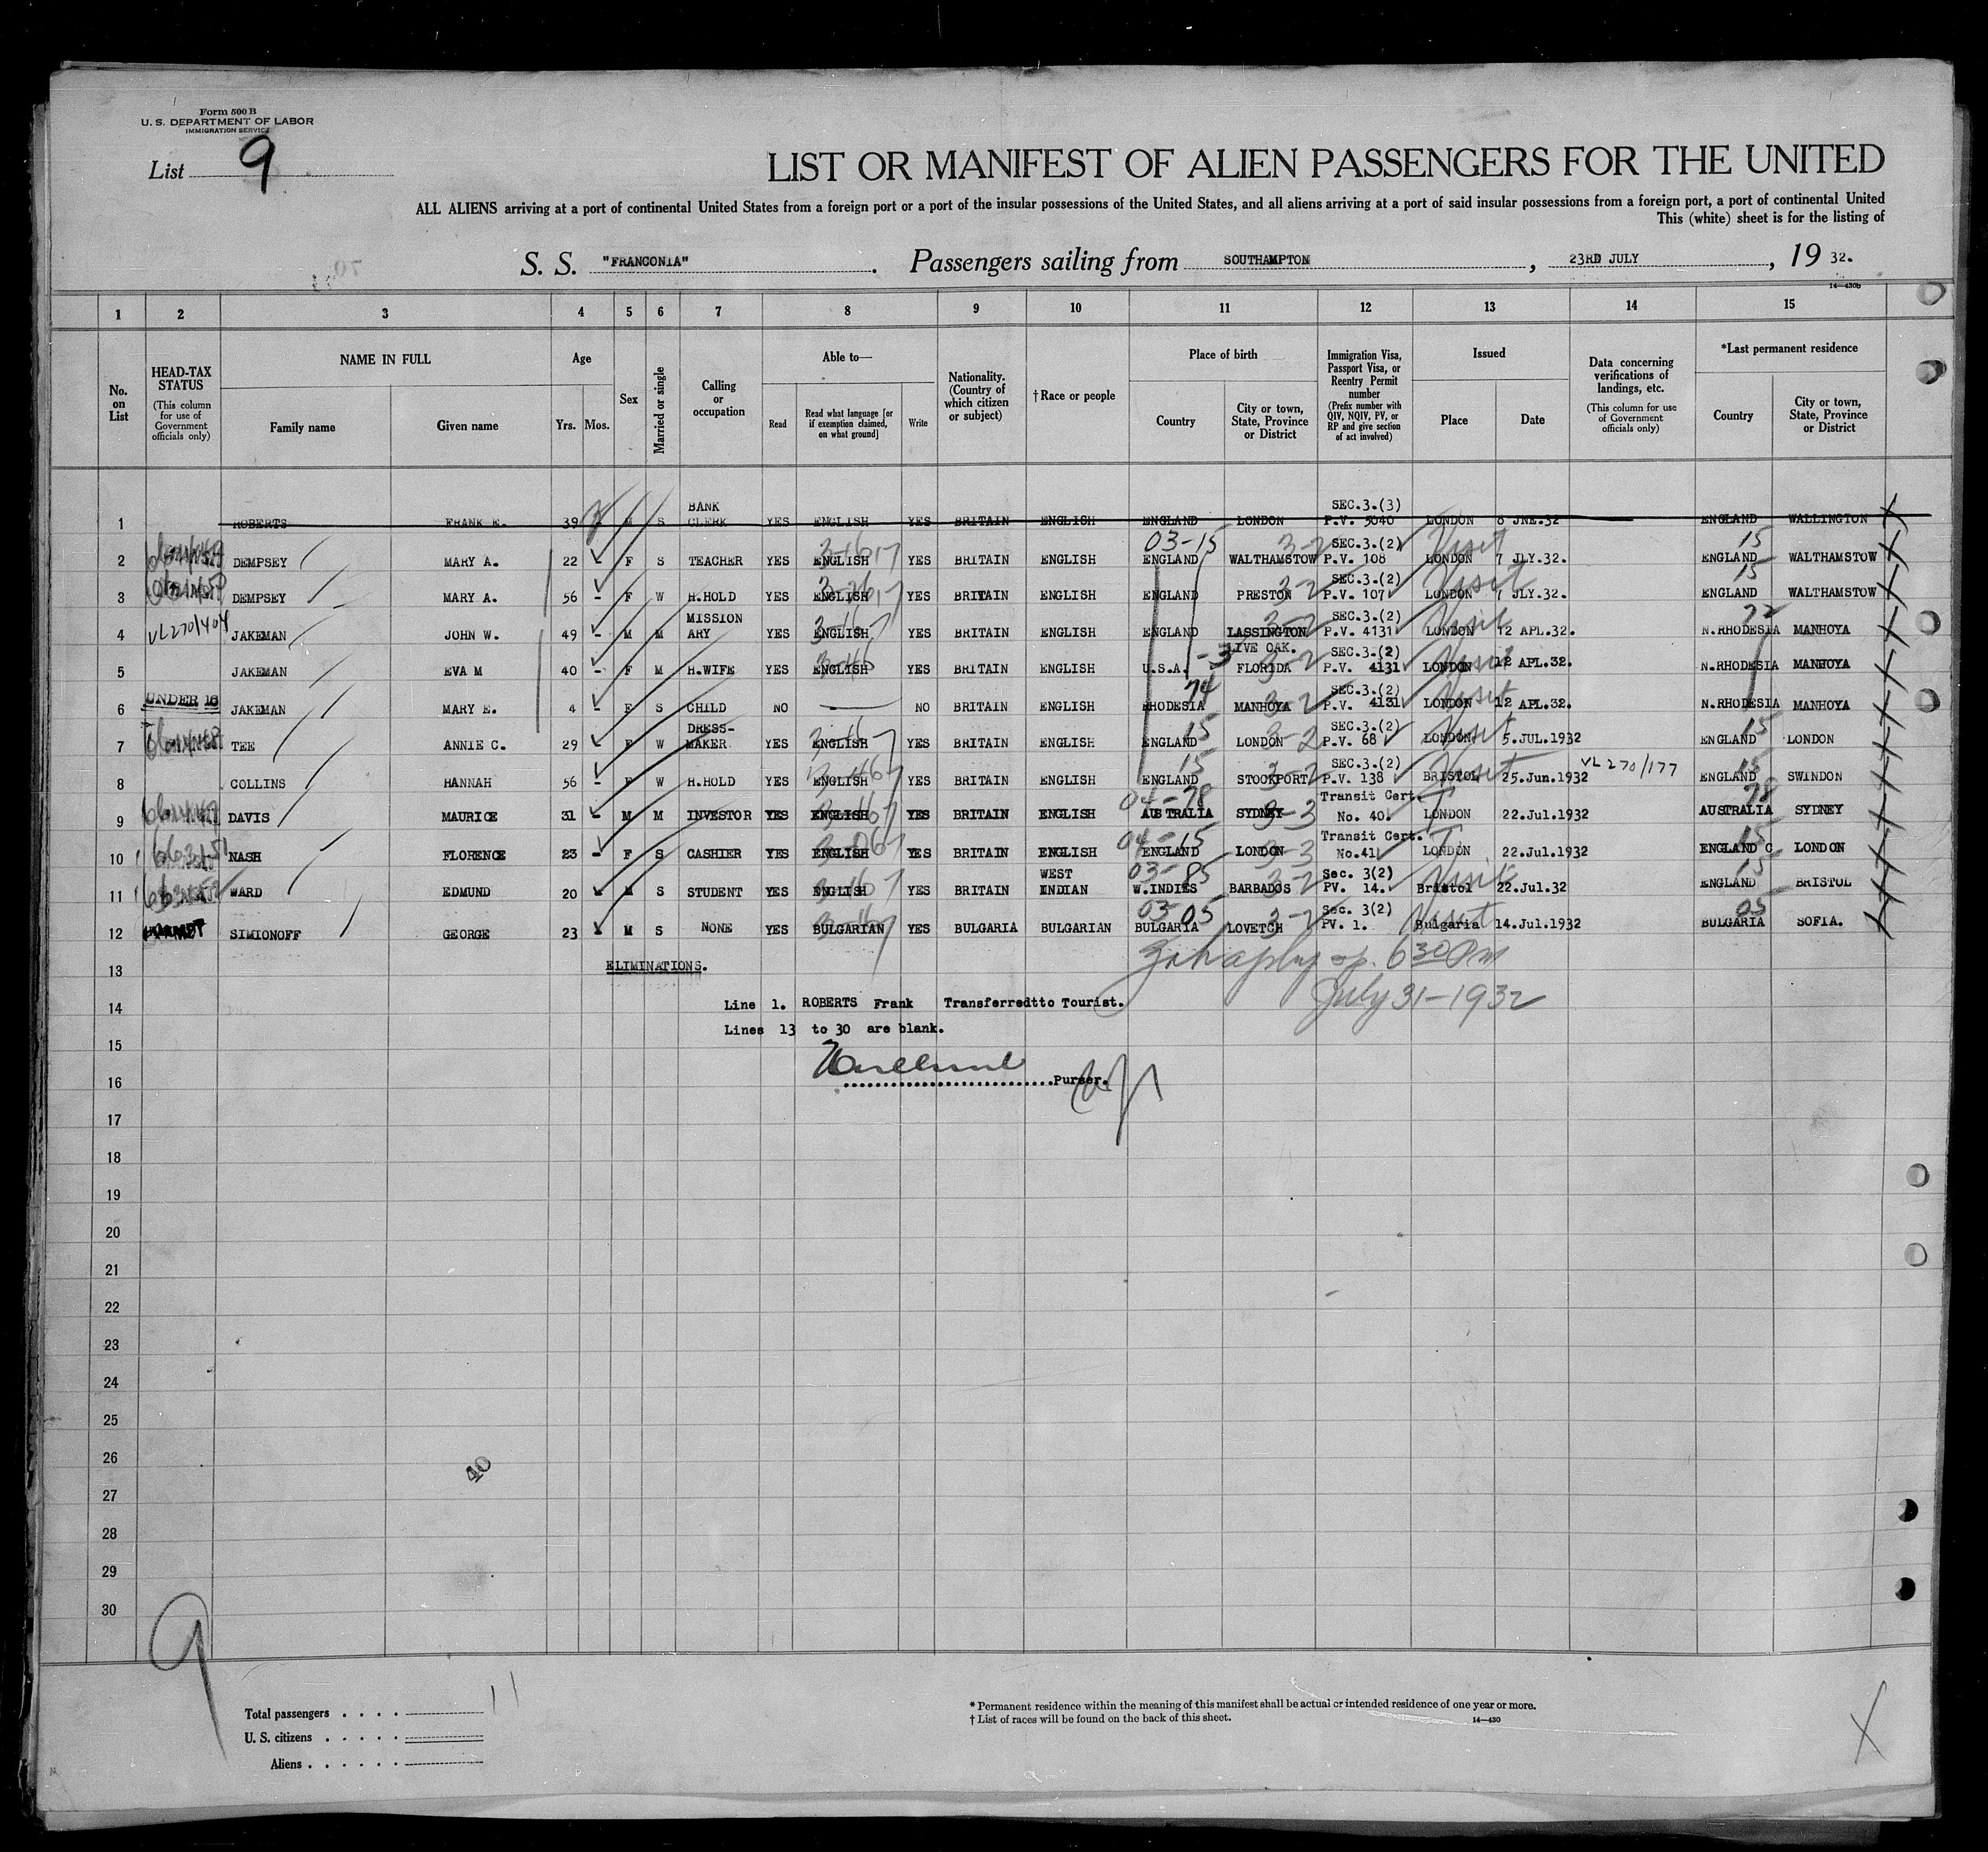 Form 500 B
U. S. DEPARTMENT OF LABOR
IMMIGRATION SERVICE
List 9
LIST OR MANIFEST OF ALIEN PASSENGERS FOR THE UNITED
ALL ALIENS arriving at a port of continental United States from a foreign port or a port of the insular possessions of the United States, and all aliens arriving at a port of said insular possessions from a foreign port, a port of continental United
This (white) sheet is for the listing of
S. S. "FRANCONIA". Passengers sailing from SOUTHAMPTON, 23RD JULY, 19 32.
14—430b
1 2 3 4 5 6 7 8 9 10 11 12 13 14 15
No. on List
HEAD-TAX STATUS (This column for use of Government officials only)
NAME IN FULL Family name Given name
Age Yrs. Mos.
Sex
Married or single
Calling or occupation
Able to— Read Read what language [or if exemption claimed, on what ground] Write
Nationality. (Country of which citizen or subject)
† Race or people
Place of birth Country City or town, State, Province or District
Immigration Visa, Passport Visa, or Reentry Permit number (Prefix number with QIV, NQIV, PV, or RP and give section of act involved)
Issued Place Date
Data concerning verifications of landings, etc. (This column for use of Government officials only)
*Last permanent residence Country City or town, State, Province or District
1 ROBERTS FRANK E. 39 - M S BANK CLERK YES ENGLISH YES BRITAIN ENGLISH ENGLAND LONDON SEC.3.(3) P.V. 5040 LONDON 8 JNE.32 ENGLAND WALLINGTON
2 DEMPSEY MARY A. 22 F S TEACHER YES ENGLISH YES BRITAIN ENGLISH 03-15 ENGLAND WALTHAMSTOW 3-2 SEC.3.(2) P.V. 108 LONDON Visit 7 JLY.32. 15 ENGLAND WALTHAMSTOW
3 DEMPSEY MARY A. 56 - F W H.HOLD YES ENGLISH YES BRITAIN ENGLISH ENGLAND PRESTON 3-2 SEC.3.(2) P.V. 107 LONDON Visit 7 JLY.32. 15 ENGLAND WALTHAMSTOW
4 VL270/404 JAKEMAN JOHN W. 49 - M M MISSION ARY YES ENGLISH YES BRITAIN ENGLISH ENGLAND LASSINGTON 3-2 SEC.3.(2) P.V. 4131 LONDON Visit 12 APL.32. N.RHODESIA MANHOYA
5 JAKEMAN EVA M 40 - F M H.WIFE YES ENGLISH YES BRITAIN ENGLISH U.S.A. -3 LIVE OAK. FLORIDA 3-2 SEC.3.(2) P.V. 4131 LONDON Visit 12 APL.32. N.RHODESIA MANHOYA
6 UNDER 16 JAKEMAN MARY E. 4 - F S CHILD NO — NO BRITAIN ENGLISH 74 RHODESIA MANHOYA 3-2 SEC.3.(2) P.V. 4131 LONDON Visit 12 APL.32. N.RHODESIA MANHOYA
7 TEE ANNIE C. 29 F W DRESS-MAKER YES ENGLISH YES BRITAIN ENGLISH 15 ENGLAND LONDON 3-2 SEC.3.(2) P.V. 68 LONDON Visit 5.JUL.1932 15 ENGLAND LONDON
8 COLLINS HANNAH 56 - F W H.HOLD YES ENGLISH YES BRITAIN ENGLISH 15 ENGLAND STOCKPORT 3-2 SEC.3.(2) P.V. 138 BRISTOL Visit 25.Jun.1932 VL 270/177 15 ENGLAND SWINDON
9 DAVIS MAURICE 31 M M INVESTOR YES ENGLISH YES BRITAIN ENGLISH 04-78 AUSTRALIA SYDNEY 3-3 Transit Cert. No. 40. LONDON T 22.Jul.1932 78 AUSTRALIA SYDNEY
10 NASH FLORENCE 23 - F S CASHIER YES ENGLISH YES BRITAIN ENGLISH 04-15 ENGLAND LONDON 3-3 Transit Cert. No.41 LONDON T 22.Jul.1932 15 ENGLAND C LONDON
11 WARD EDMUND 20 M S STUDENT YES ENGLISH YES BRITAIN WEST INDIAN 03-85 W.INDIES BARBADOS 3-2 Sec. 3(2) PV. 14. Bristol Visit 22.Jul.32 15 ENGLAND BRISTOL
12 SIMIONOFF GEORGE 23 M S NONE YES BULGARIAN YES BULGARIA BULGARIAN 03 05 BULGARIA LOVETCH 3-2 Sec. 3(2) PV. 1. Bulgaria Visit 14.Jul.1932 05 BULGARIA SOFIA.
13 ELIMINATIONS. 6 30 Pm
14 Line 1. ROBERTS Frank Transferredtto Tourist. July 31-1932
Lines 13 to 30 are blank.
15
16 Purser.
17
18
19
20
21
22
23
24
25
26
40
27
28
29
30
9
Total passengers . . . . 11
U. S. citizens . . . . .
Aliens . . . . . .
* Permanent residence within the meaning of this manifest shall be actual or intended residence of one year or more.
† List of races will be found on the back of this sheet. 14—430
X